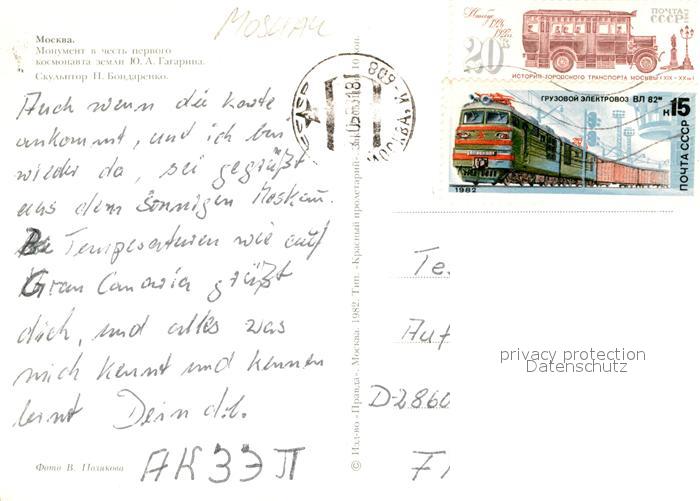 MOSKAU
Москва.
Монумент в честь первого
космонавта земли Ю. А. Гагарина.
Скульптор П. Бондаренко.
Auch wenn die Karte
ankommt, und ich bin
wieder da, sei gegrüßt
aus dem sonnigen Moskau.
Temperaturen wie auf
Gran Canaria grüßt
dich, und alles was
mich kennt und kennen
lernt Dein
Фото В. Полякова
АКЗЭП
© Изд-во «Правда». Москва. 1982. Тип. «Красный пролетарий». 10 коп.
СССР
МОСКВА
809
ПОЧТА
СССР
20К
ИСТОРИЯ ГОРОДСКОГО ТРАНСПОРТА МОСКВЫ (XIX-XXвв)
ГРУЗОВОЙ ЭЛЕКТРОВОЗ ВЛ 82м
К 15
ПОЧТА СССР
1982
Te.
D-2860
privacy protection
Datenschutz